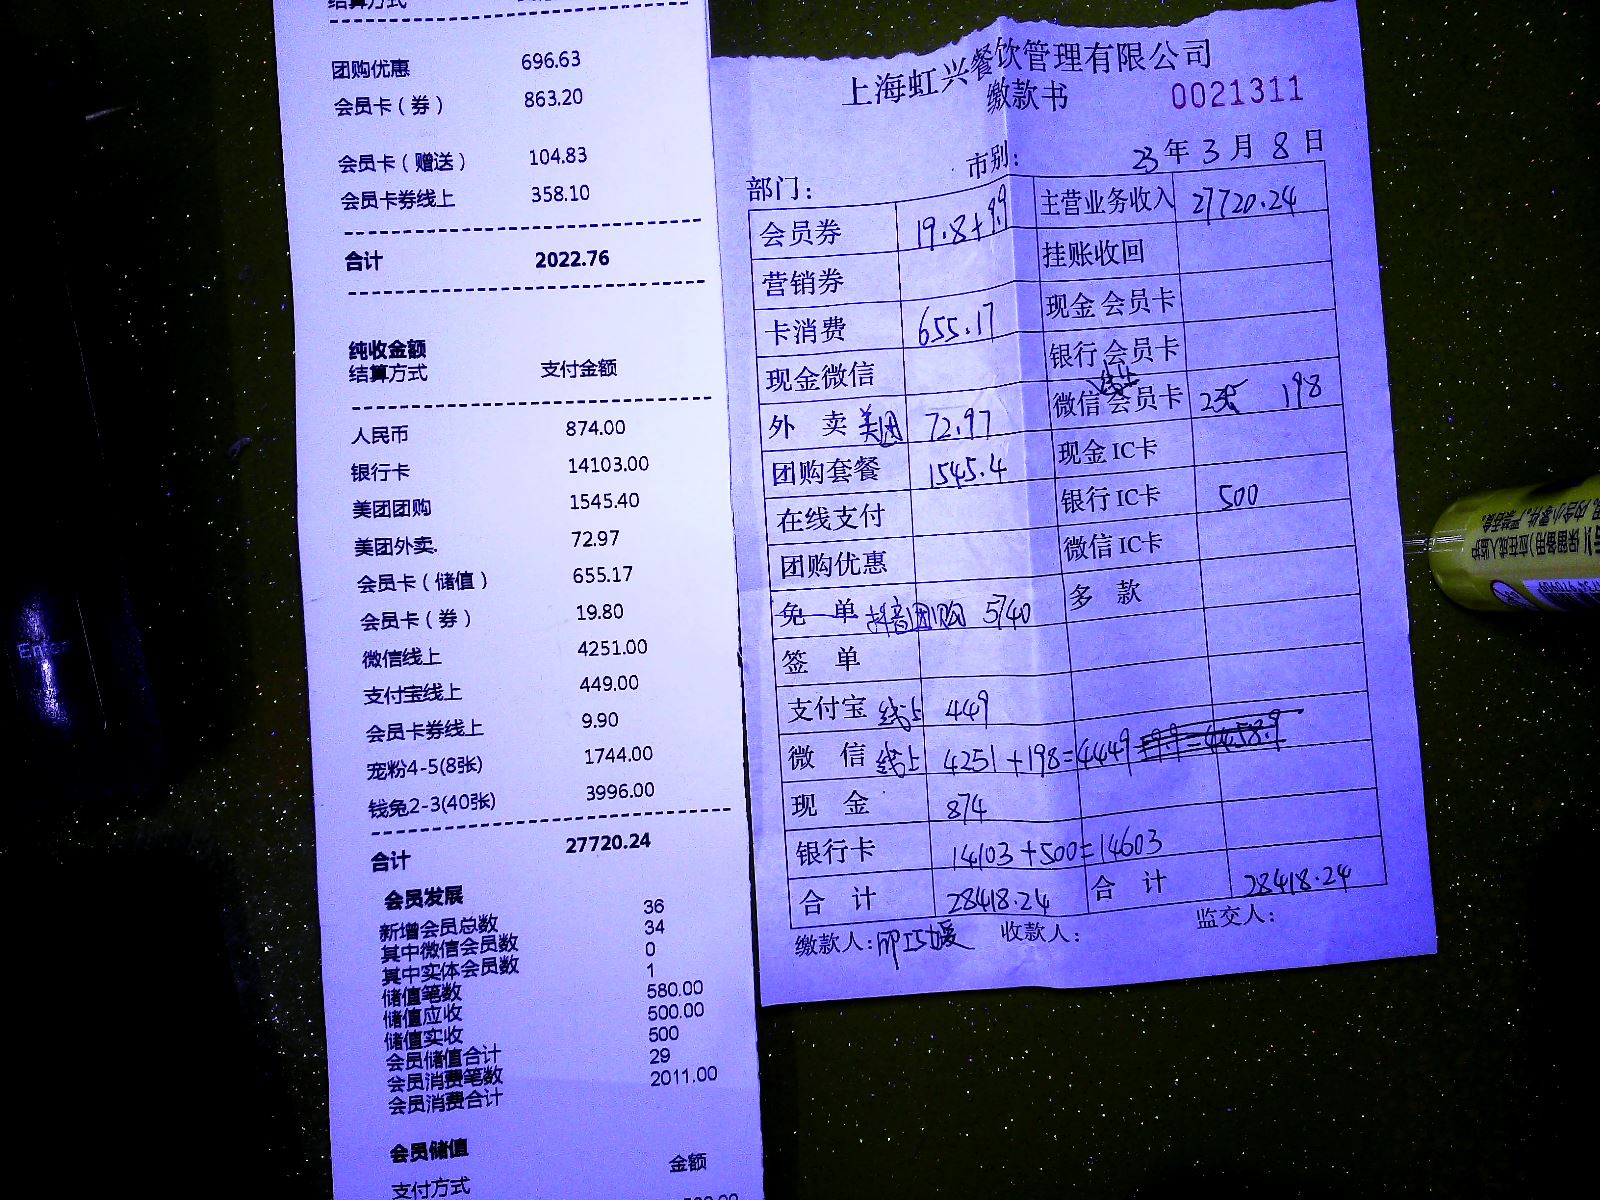 结算方式
团购优惠 696.63
会员卡（券） 863.20
会员卡（赠送） 104.83
会员卡券线上 358.10
合计 2022.76
纯收金额
结算方式 支付金额
人民币 874.00
银行卡 14103.00
美团团购 1545.40
美团外卖. 72.97
会员卡（储值） 655.17
会员卡（券） 19.80
微信线上 4251.00
支付宝线上 449.00
会员卡券线上 9.90
宠粉4-5(8张) 1744.00
钱兔2-3(40张) 3996.00
合计 27720.24
会员发展
新增会员总数 36
其中微信会员数 34
其中实体会员数 0
储值笔数 1
储值应收 580.00
储值实收 500.00
会员储值合计 500
会员消费笔数 29
会员消费合计 2011.00
会员储值
支付方式 金额
上海虹兴餐饮管理有限公司
缴款书 0021311
部门： 市别： 23年3月8日
会员券 19.8+9.9 主营业务收入 27720.24
营销券 挂账收回
卡消费 655.17 现金会员卡
现金微信 银行会员卡
外卖美团 72.97 微信会员卡 线上 198
团购套餐 1545.4 现金IC卡
在线支付 银行IC卡 500
团购优惠 微信IC卡
免单 抖音团购 5740 多款
签单
支付宝线上 449
微信线上 4251+198=4449
现金 874
银行卡 14103+500=14603
合计 28418.24 合计 28418.24
缴款人： 收款人： 监交人：
Enter